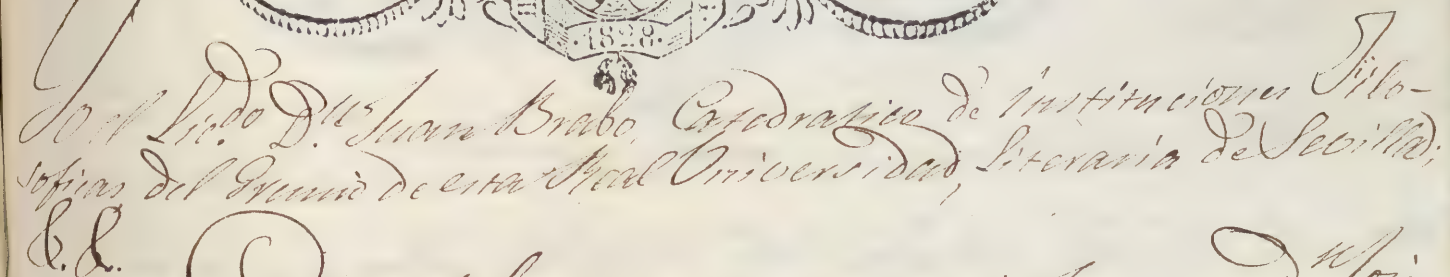 ·1828·
Yo el Lic.do D.n Juan Brabo, Catedratico de Instituciones Filo-
soficas del Gremio de esta Real Universidad, Literaria de Sevilla;
&. &.